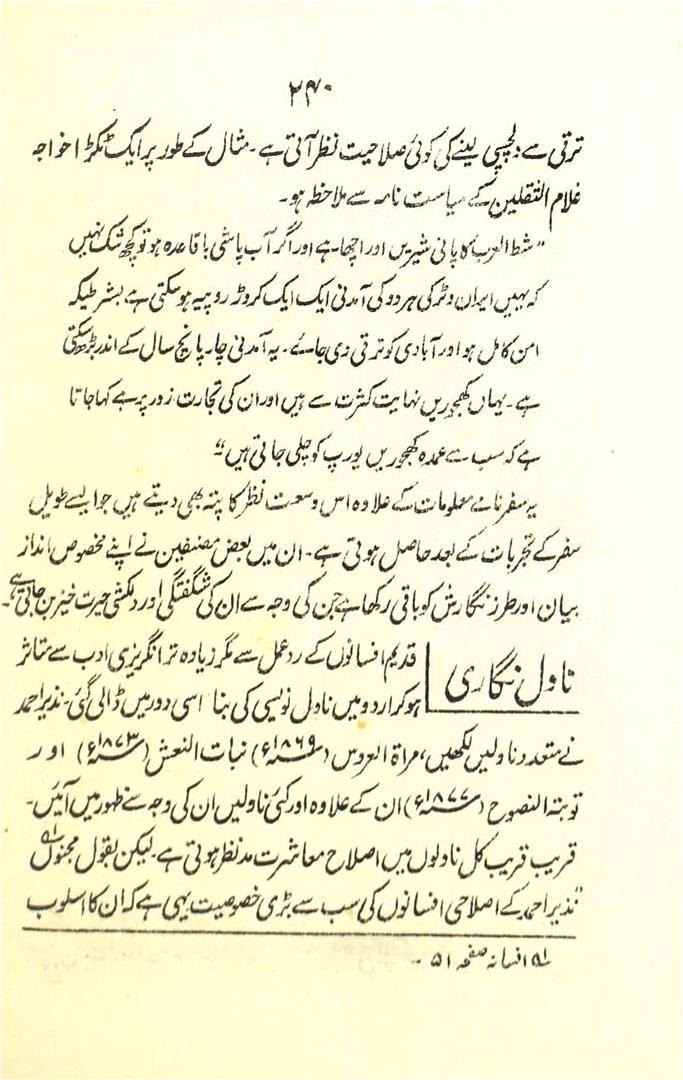 ۲۴۰
ترقی سے دلچسپی لینے کی کوئی صلاحیت نظر آتی ہے۔ مثال کے طور پر ایک ٹکڑا خواجہ
غلام الثقلین کے سیاست نامہ سے ملاحظہ ہو۔
”شط العرب کا پانی شیریں اور اچھا ہے اور اگر آب پاشی باقاعدہ ہو تو کچھ شک نہیں
کہ یہیں ایران و ٹرکی ہر دو کی آمدنی ایک ایک کروڑ روپیہ ہوسکتی ہے بشرطیکہ
امن کامل ہو اور آبادی کو ترقی دی جائے۔ یہ آمدنی چار پانچ سال کے اندر بڑھ سکتی
ہے۔ یہاں کھجوریں نہایت کثرت سے ہیں اور ان کی تجارت زور پر ہے کہا جاتا
ہے کہ سب سے عمدہ کھجوریں یورپ کو چلی جاتی ہیں“
یہ سفرنامے معلومات کے علاوہ اس وسعت نظر کا پتہ بھی دیتے ہیں جو ایسے طویل
سفر کے تجربات کے بعد حاصل ہوتی ہے۔ ان میں بعض مصنفین نے اپنے مخصوص انداز
بیان اور طرز نگارش کو باقی رکھا ہے جن کی وجہ سے ان کی شگفتگی اور دلکشی حیرت خیز بن جاتی ہے۔
ناول نگاری
قدیم افسانوں کے ردعمل سے مگر زیادہ تر انگریزی ادب سے متاثر
ہوکر اردو میں ناول نویسی کی بنا اسی دور میں ڈالی گئی۔ نذیر احمد
نے متعدد ناولیں لکھیں، مراۃ العروس (۱۸۶۹ء) نبات النعش (۱۸۷۳ء) اور
توبتہ النصوح (۱۸۷۷ء) ان کے علاوہ اور کئی ناولیں ان کی وجہ سے ظہور میں آئیں۔
قریب قریب کل ناولوں میں اصلاح معاشرت مدنظر ہوتی ہے۔ لیکن بقول مجنوں ؎۱
”نذیر احمد کے اصلاحی افسانوں کی سب سے بڑی خصوصیت یہی ہے کہ ان کا اسلوب
؎۱ افسانہ صفحہ ۵۱ ۔